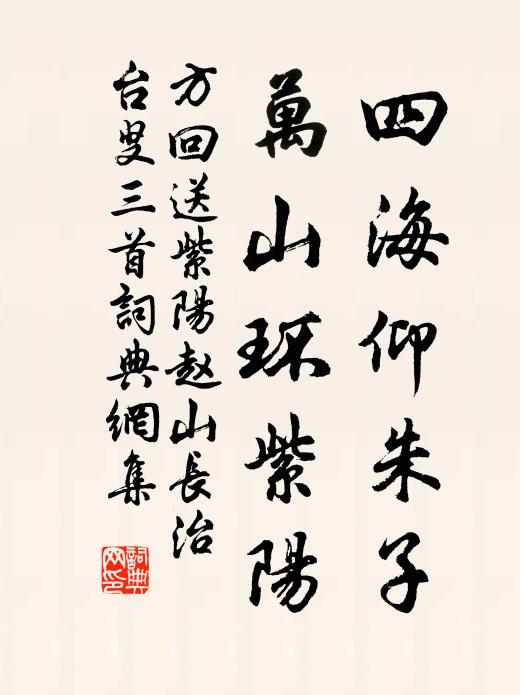 四海仰朱子
萬山环紫陽
方回送紫陽赵山長治
台叟三首詞典網集
詞典网印